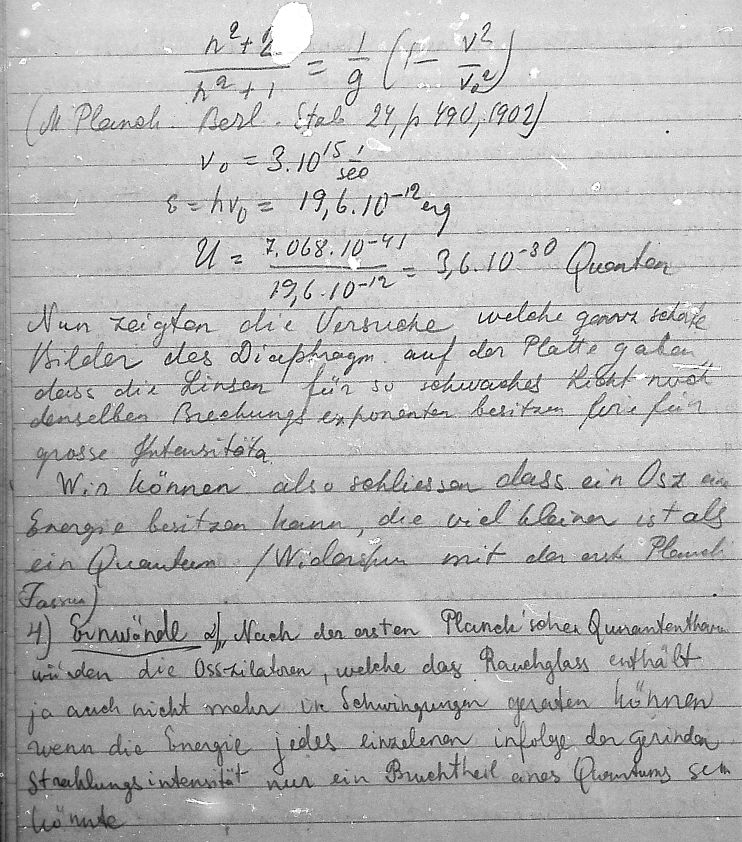 n²+2 / n²+1 = 1/g (1 − ν²/ν₀²)
(M Planck. Berl. Stab 24, p 490, 1902)
ν₀ = 3.10¹⁵ 1/sec
ε = hν₀ = 19,6.10⁻¹² erg
U = 7.068.10⁻⁴¹ / 19,6.10⁻¹² = 3,6.10⁻³⁰ Quanten
Nun zeigten die Versuche welche ganz scharfe
Bilder des Diaphragm. auf der Platte gaben,
dass die Linsen für so schwaches Licht noch
denselben Brechungsexponenten besitzen wie für
grosse Intensitäta
Wir können also schliessen dass ein Osz eine
Energie besitzen kann, die viel kleiner ist als
ein Quantum /Widerspru mit der erste Planck
Fassun)
4) Einwände α/ Nach der ersten Planck'schen Qunantentheorie
würden die Osszilatoren, welche das Rauchglass enthält
ja auch nicht mehr in Schwingungen geraten können
wenn die Energie jedes einzelenen infolge der gerinden
Strahlungsintensität nur ein Bruchtheil eines Quantums sein
könnte